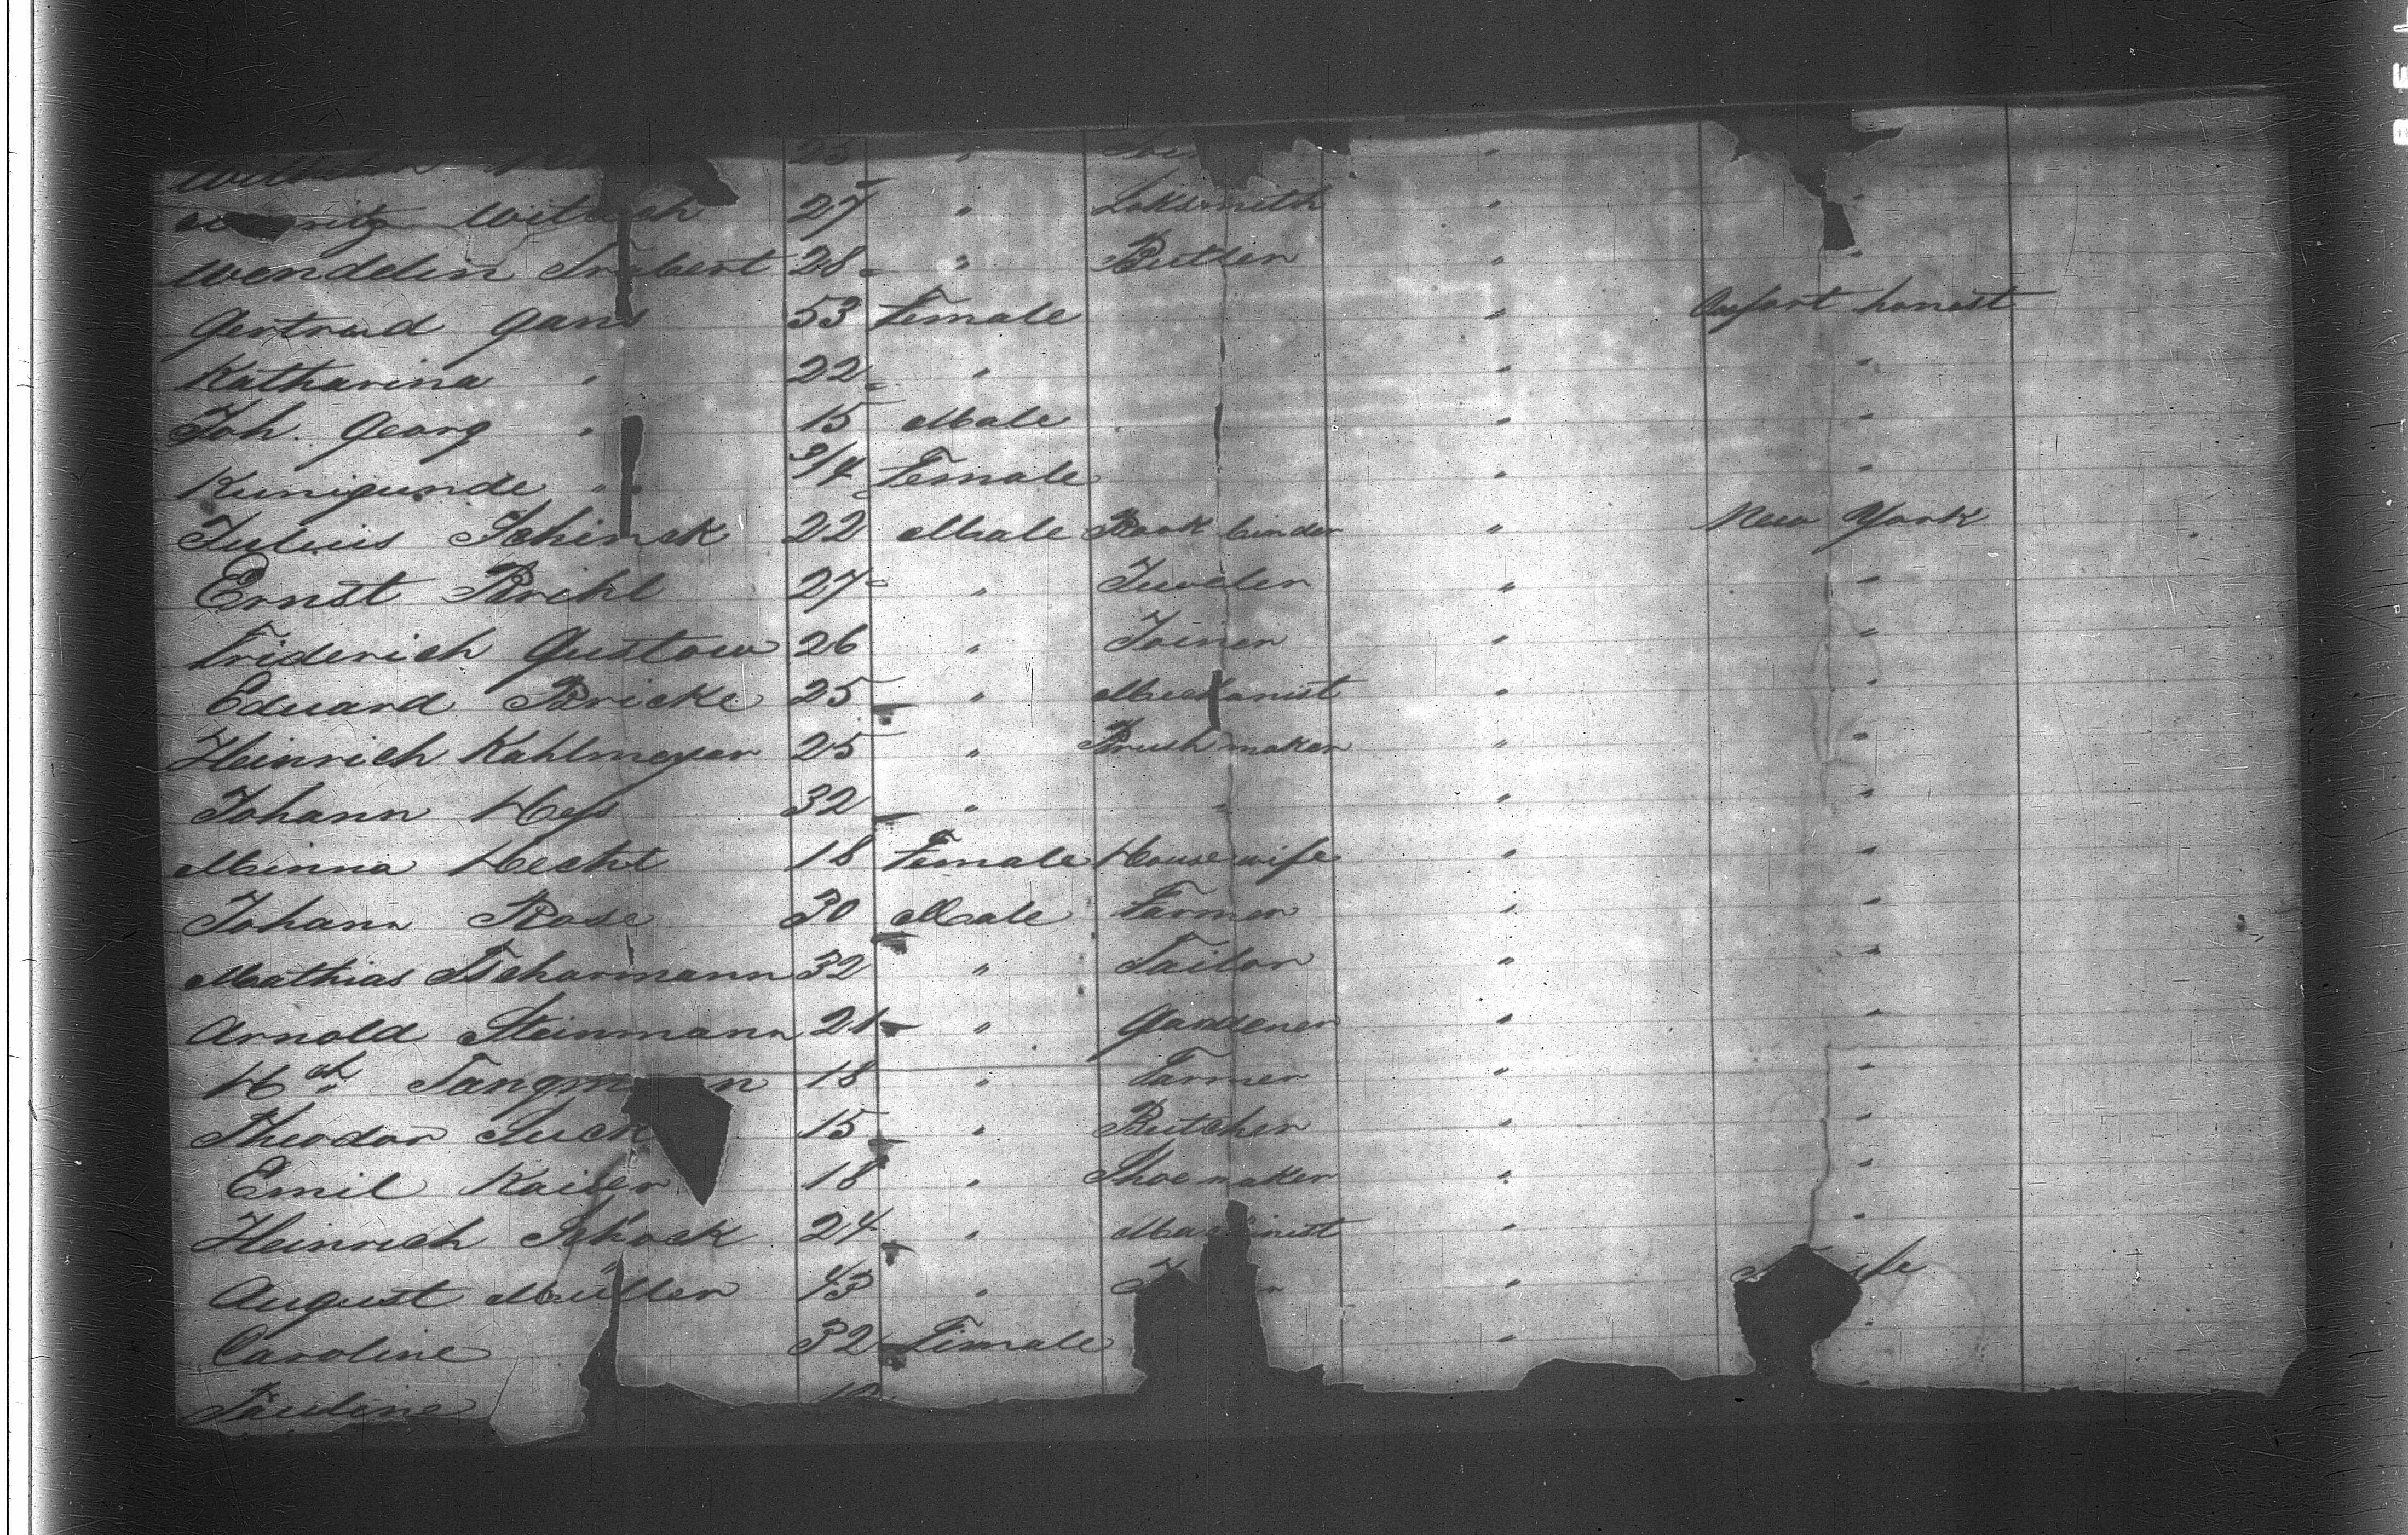 Wilhelm 25 "
Witsch 27 " Loksmith " "
Wenddelin Trabert 28 " Butler " "
Gertrud Gans 53 Female " honest
Katharina " 22 " " "
Joh. Georg " 15 Male " "
Kunigunde " 3/4 Female " "
Julius Schinck 22 Male Book binder " New York
Ernst Briehl 27 " Juweler " "
Friderich Gustow 26 " Joiner " "
Eduard Bricke 25 " Mechanist " "
Heinrich Kahlmeyer 25 " Brush maker " "
Johann Hess 32 " " " "
Minna Hecht 18 Female House wife " "
Johann Rose 30 Male Farmer " "
Mathias Tscharmann 32 " Tailor " "
Arnold Steinmann 21 " Gardener " "
Hch Tangm n 18 " Farmer " "
Theodor Suck 15 " Butcher " "
Emil Kaiser 18 " Shoemaker " "
Heinrich Schock 24 " Machinist " "
August Müller 43 " "
Caroline 32 Fimale " "
Pauline